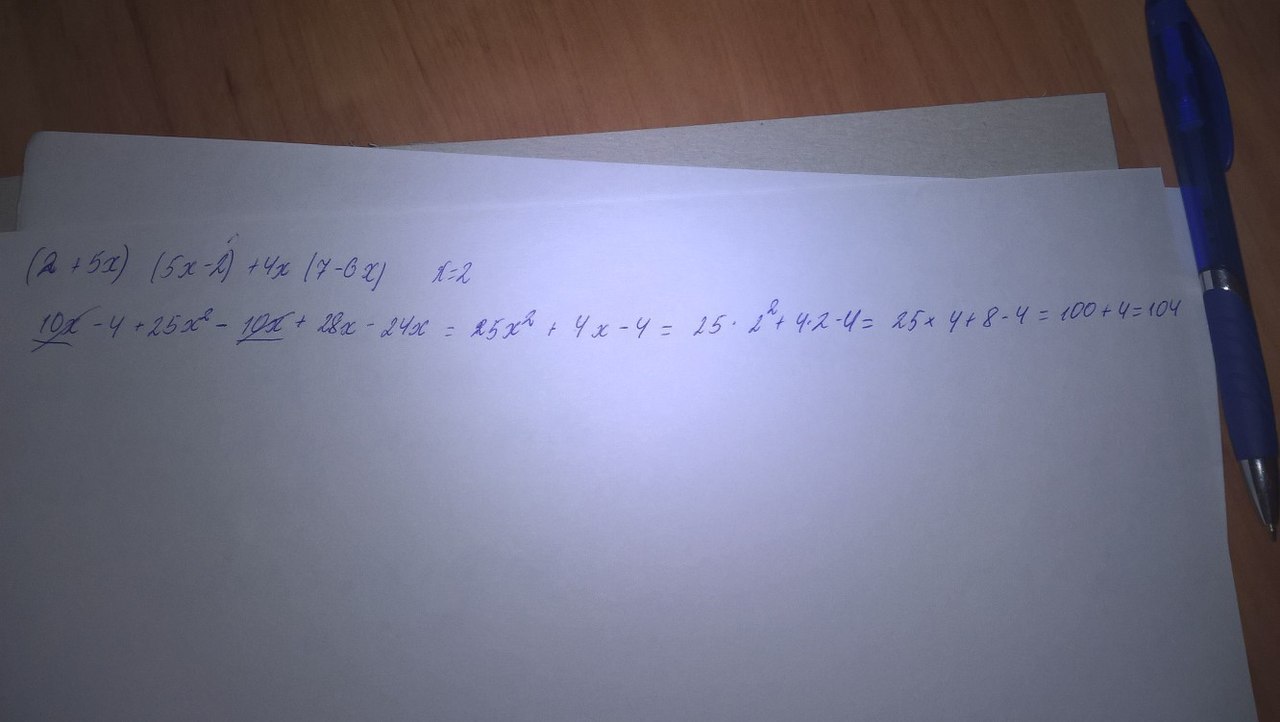 (2 + 5x) (5x - 2) + 4x (7 - 6x) x = 2
10x - 4 + 25x² - 10x + 28x - 24x = 25x² + 4x - 4 = 25 · 2² + 4 · 2 - 4 = 25 × 4 + 8 - 4 = 100 + 4 = 104